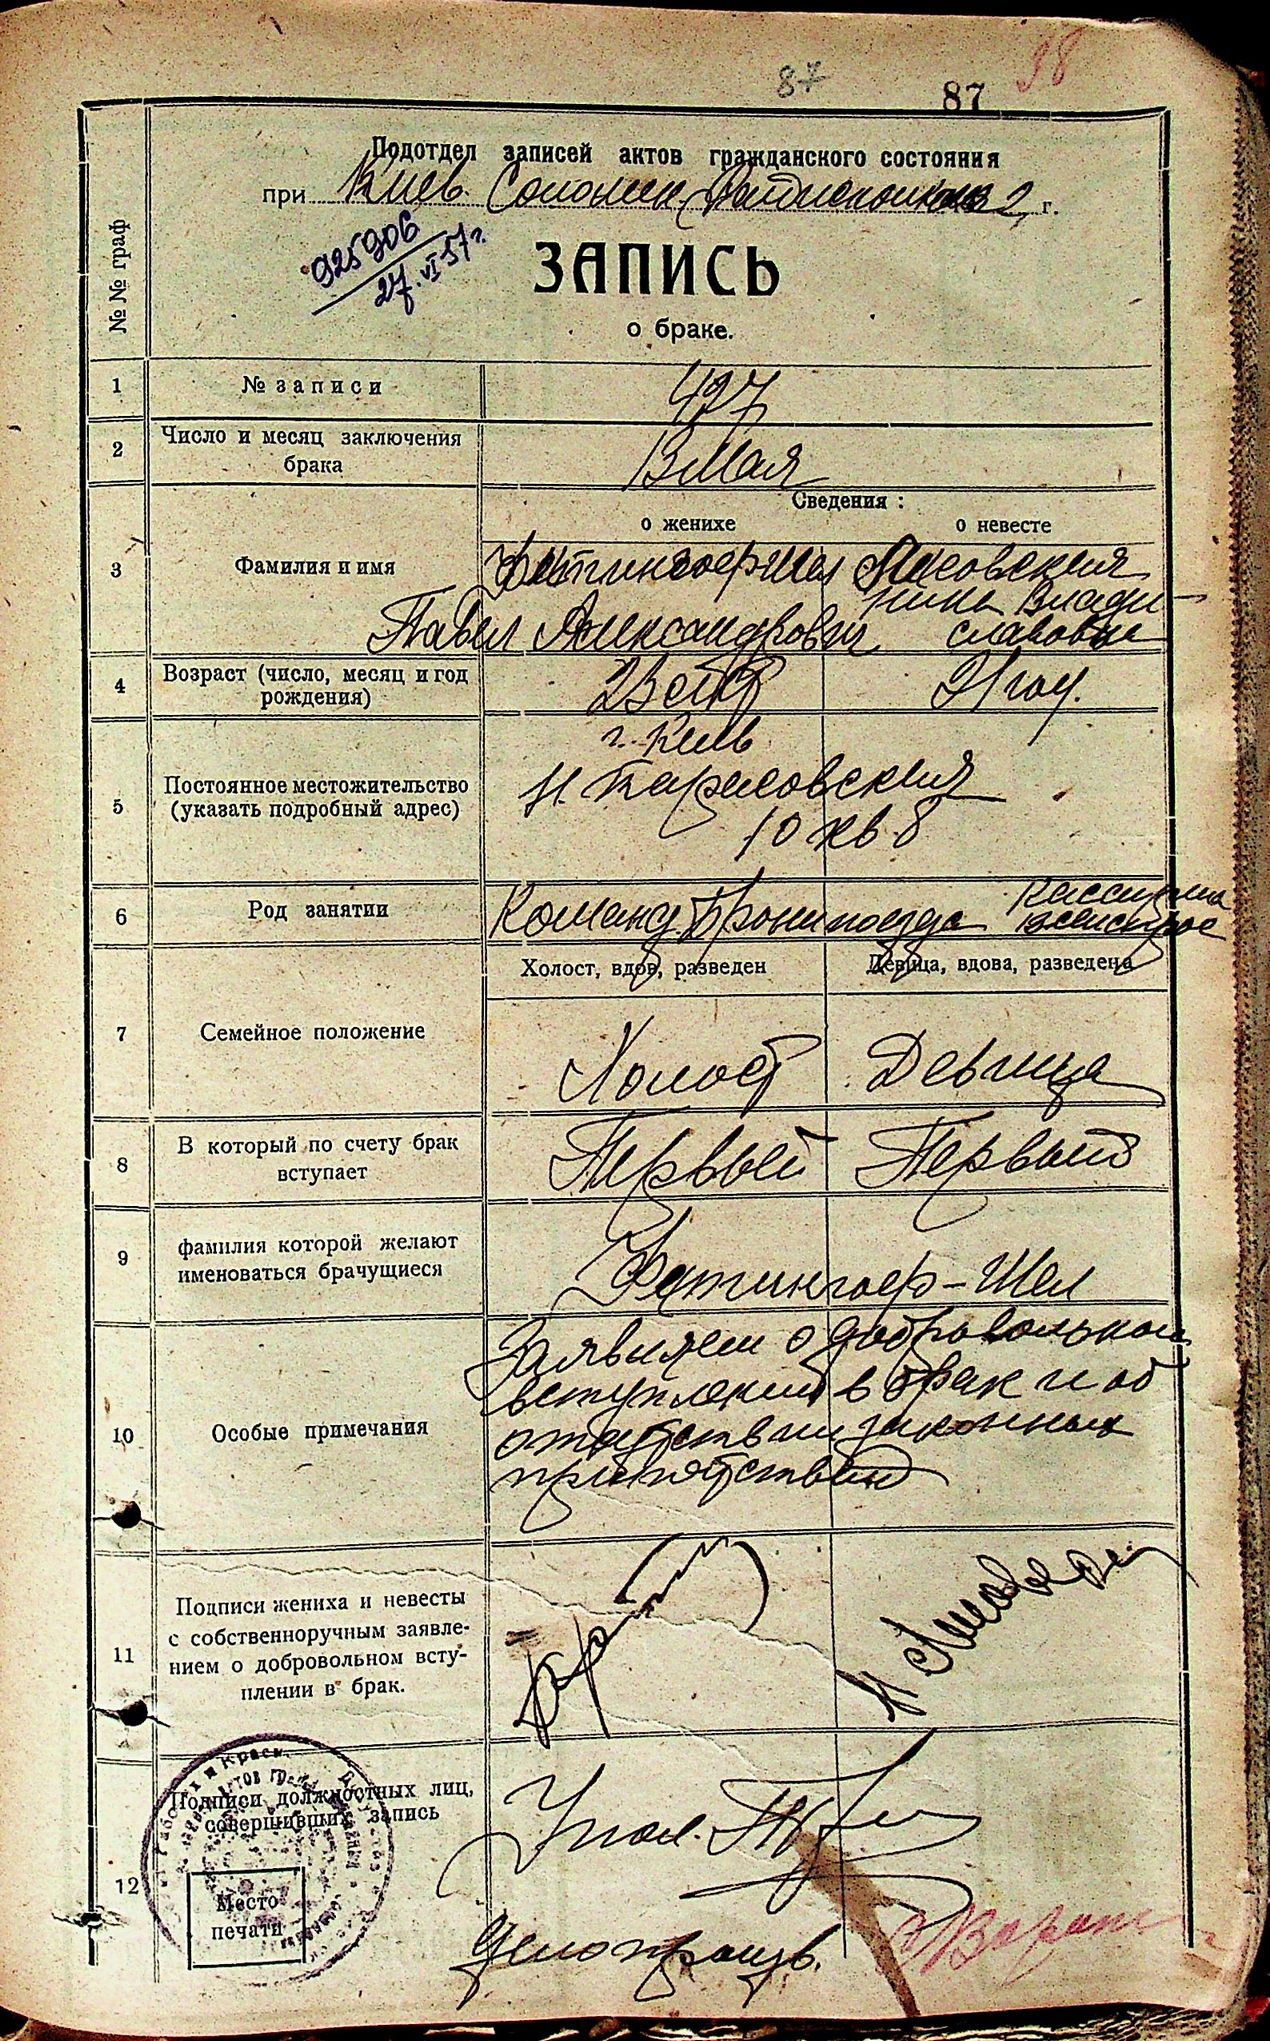 87
87
98
Подотдел записей актов гражданского состояния
при Киев. Соломен. г.
925906
27.VI.57 г.
ЗАПИСЬ
о браке.
№ № граф
1 № записи 427
2 Число и месяц заключения
брака
Мая
Сведения:
о женихе о невесте
3 Фамилия и имя
Павел Александрович
Нина Влади-
славовна
4 Возраст (число, месяц и год
рождения)
5 Постоянное местожительство
(указать подробный адрес)
г. Киев
10 кв 8
6 Род занятии Команд. Бронепоезда Кассирша
Холост, вдов, разведен Девица, вдова, разведена
7 Семейное положение
Холост Девица
8 В который по счету брак
вступает
Первый Первый
9 фамилия которой желают
именоваться брачущиеся
Фитингоф-Шел
10 Особые примечания
Заявляем о добровольном
вступлении в брак и об
отсутствии законных
препятствий
11 Подписи жениха и невесты
с собственноручным заявле-
нием о добровольном всту-
плении в брак.
12 Подписи должностных лиц,
совершивших запись
Место
печати
Делопроизв.